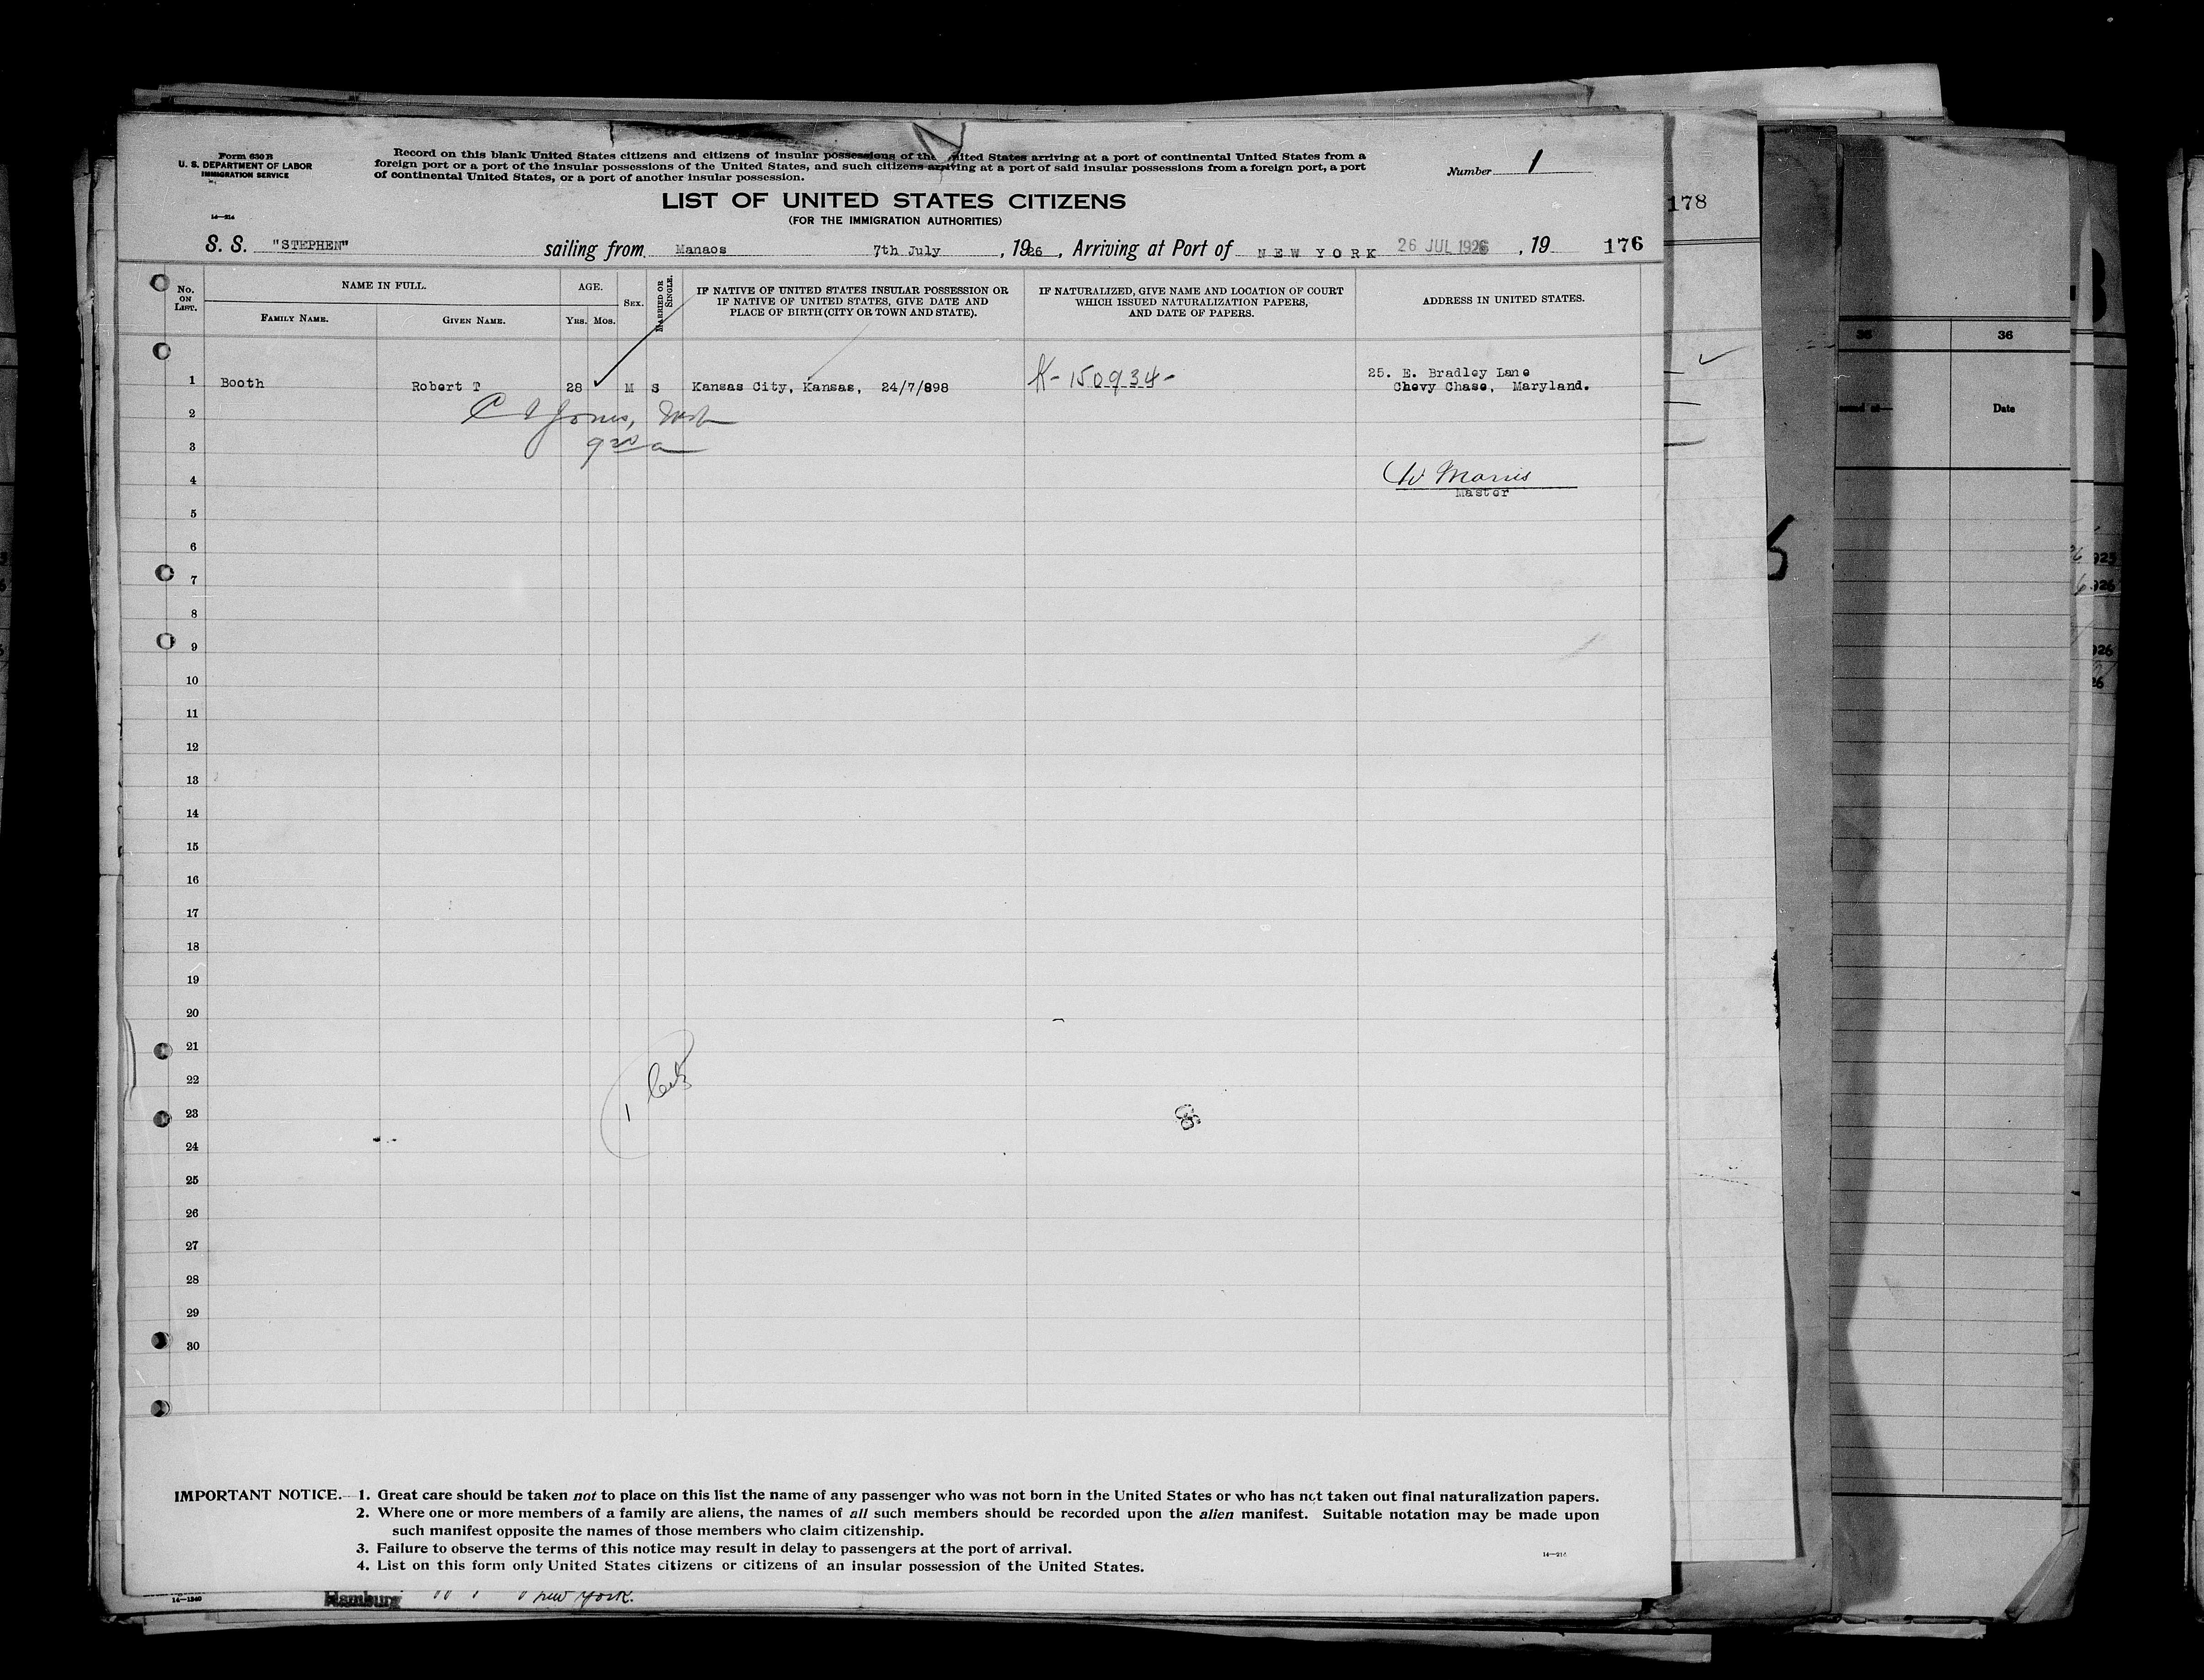 Form 630 B
U. S. DEPARTMENT OF LABOR
IMMIGRATION SERVICE
14—214
Record on this blank United States citizens and citizens of insular possessions of the United States arriving at a port of continental United States from a
foreign port or a port of the insular possessions of the United States, and such citizens arriving at a port of said insular possessions from a foreign port, a port
of continental United States, or a port of another insular possession.
Number 1
LIST OF UNITED STATES CITIZENS
(FOR THE IMMIGRATION AUTHORITIES)
178
S. S. "STEPHEN" sailing from Manaos 7th July, 1926, Arriving at Port of NEW YORK 26 JUL 1926, 19 176
No. ON LIST.
NAME IN FULL.
FAMILY NAME. GIVEN NAME.
AGE.
YRS. MOS.
SEX.
MARRIED OR SINGLE.
IF NATIVE OF UNITED STATES INSULAR POSSESSION OR
IF NATIVE OF UNITED STATES, GIVE DATE AND
PLACE OF BIRTH (CITY OR TOWN AND STATE).
IF NATURALIZED, GIVE NAME AND LOCATION OF COURT
WHICH ISSUED NATURALIZATION PAPERS,
AND DATE OF PAPERS.
ADDRESS IN UNITED STATES.
36 36
Date
1 Booth Robert T 28 M S Kansas City, Kansas, 24/7/898 K-150934- 25. E. Bradley Lane
Chevy Chase, Maryland.
2
3
4 W Morris
Master
5
6
7
8
9
10
11
12
13
14
15
16
17
18
19
20
21
22
23
24
25
26
27
28
29
30
IMPORTANT NOTICE.—1. Great care should be taken not to place on this list the name of any passenger who was not born in the United States or who has not taken out final naturalization papers.
2. Where one or more members of a family are aliens, the names of all such members should be recorded upon the alien manifest. Suitable notation may be made upon
such manifest opposite the names of those members who claim citizenship.
3. Failure to observe the terms of this notice may result in delay to passengers at the port of arrival.
4. List on this form only United States citizens or citizens of an insular possession of the United States.
14—214
14—1240
Hamburg New York.